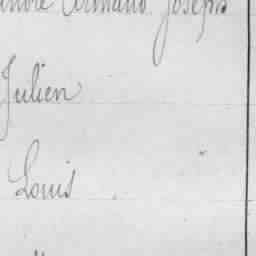 Armand Joseph
Julien
Louis